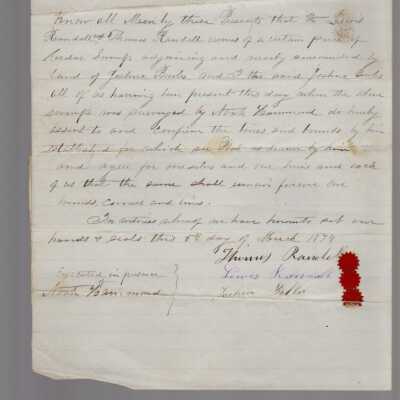 Know all Men by these Presents that We Lewis
Randall & Thomas Randall owners of a certain piece of
Cedar Swamp adjoining and nearly surrounded by
land of Joshua and I the said Joshua
all of us having been present this day when the above
swamp was surveyed by Noah Hammond do hereby
assent to and confirm the lines and bounds by him
established for which see Plot as drawn by him
and agree for ourselves and our heirs and each
of us that the same shall remain forever our
bounds, corners and lines.
In witness whereof we have hereunto set our
hands & seals this day of March
Thomas Randall
Executed in presence Lewis Randall
Noah Hammond Joshua